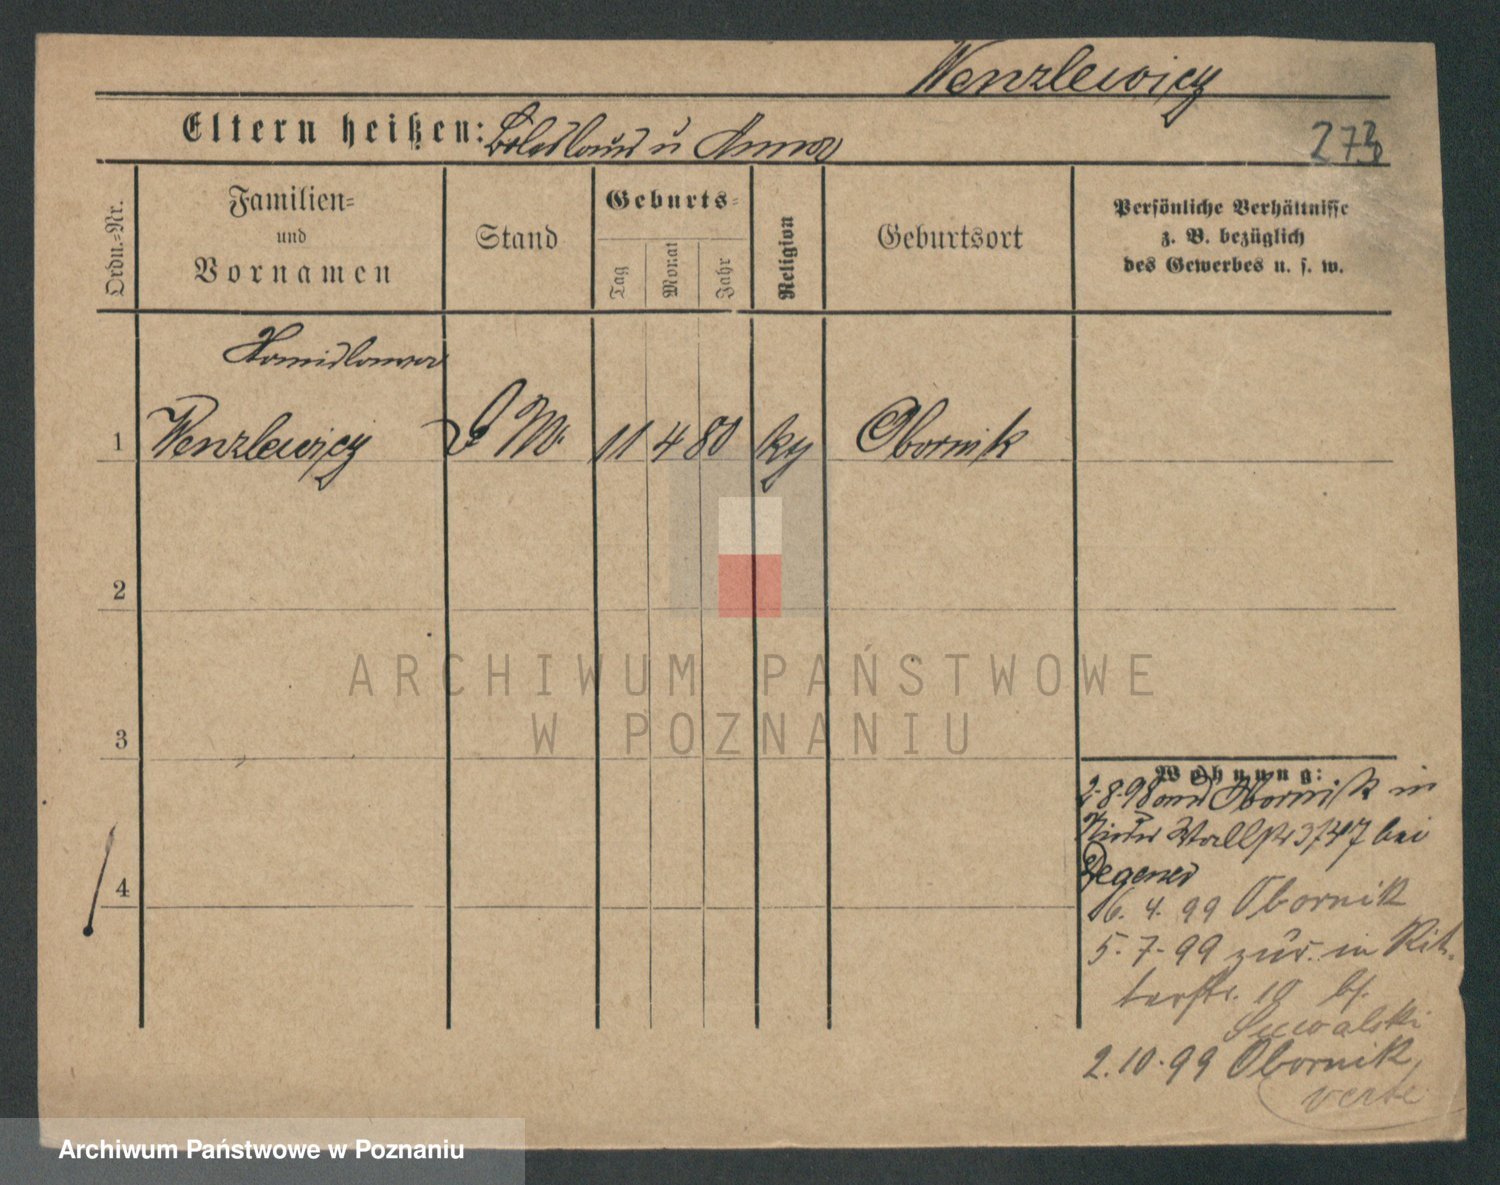 Wenzlewicz
Eltern heißen: Boleslaus u Anna
273
Ordn.-Nr.
Familien-
und
Vornamen
Stand
Geburts-
Tag
Monat
Jahr
Religion
Geburtsort
Persönliche Verhältnisse
z. B. bezüglich
des Gewerbes u. s. w.
Stanislawa
1 Wenzlewicz D M. 11 4 80 kg Obornik
2
3
4
ARCHIWUM PAŃSTWOWE
W POZNANIU
Wohnung:
2.8.98 aus Obornik in
Wallstr bei
Degener
16. 4. 99 Obornik
5. 7. 99 zur. in Rit-
terstr. 10 bei
Suwalski
2. 10. 99 Obornik
verte
Archiwum Państwowe w Poznaniu